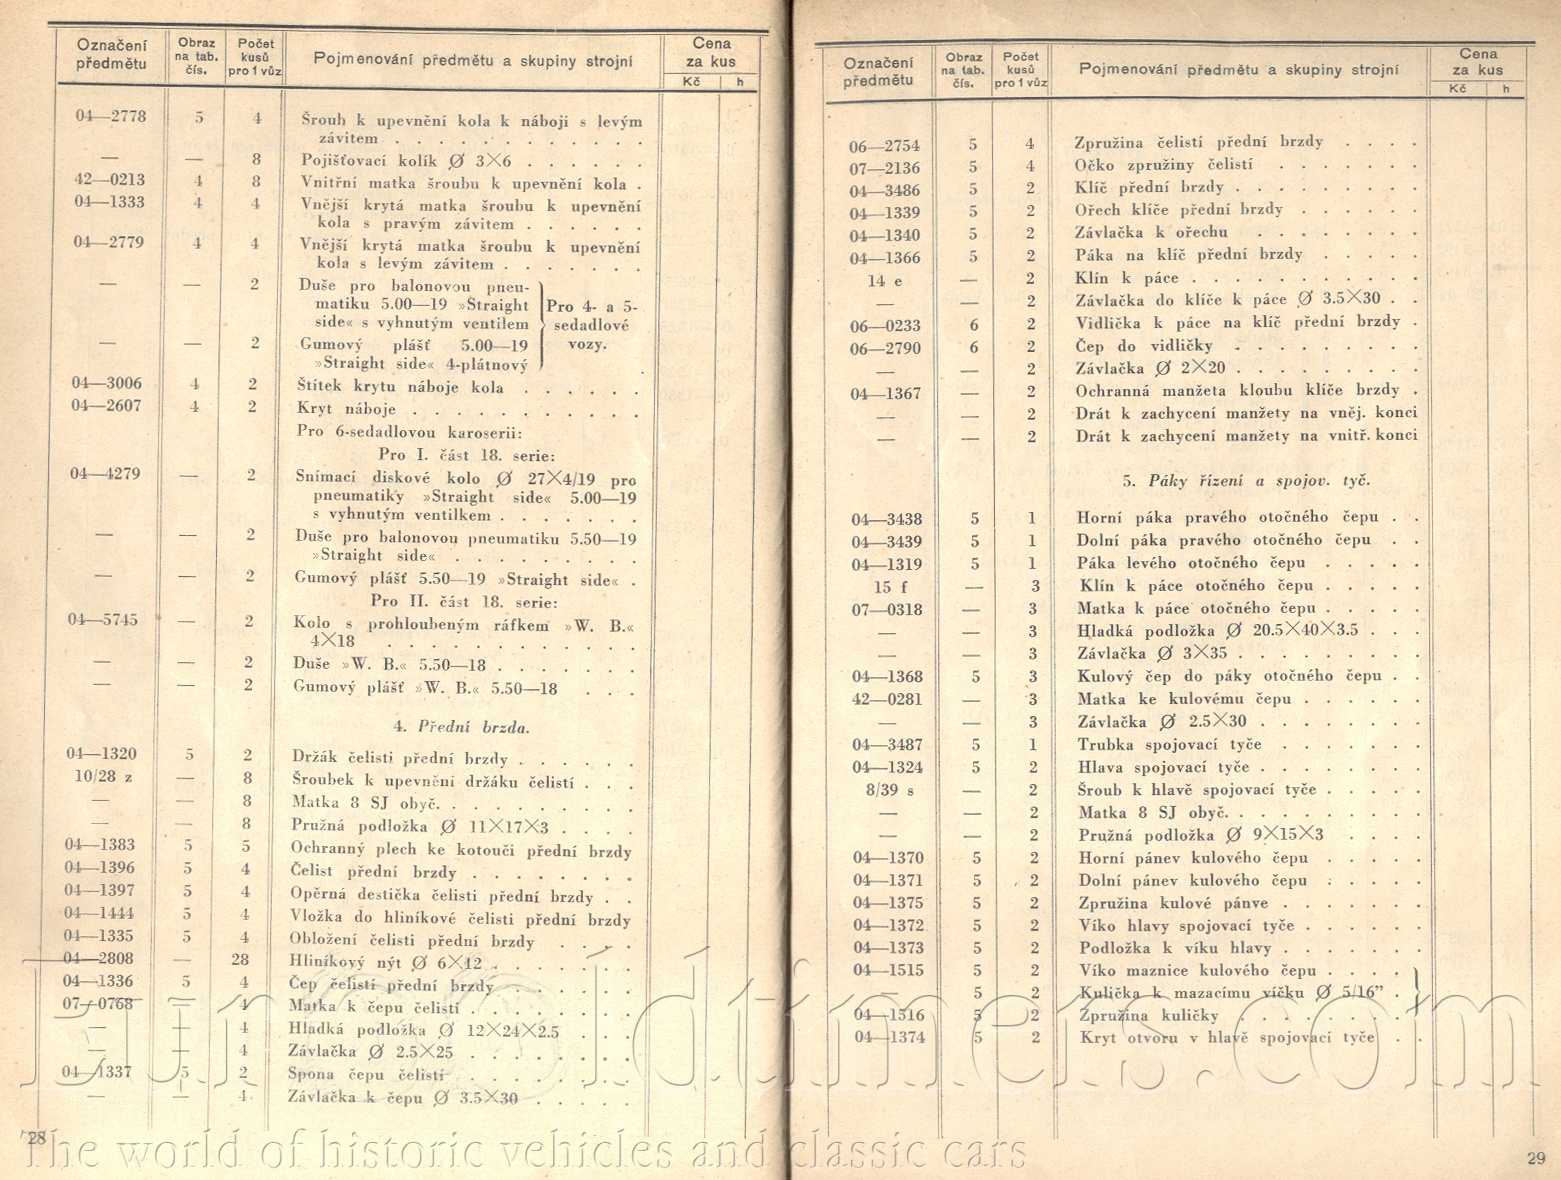 Označení předmětu | Obraz na tab. čís. | Počet kusů pro 1 vůz | Pojmenování předmětu a skupiny strojní | Cena za kus Kč | h
04—2778 5 4 Šroub k upevnění kola k náboji s levým
závitem . . . . . . . . . . .
— — 8 Pojišťovací kolík Ø 3×6 . . . . . .
42—0213 4 8 Vnitřní matka šroubu k upevnění kola .
04—1333 4 4 Vnější krytá matka šroubu k upevnění
kola s pravým závitem . . . . . .
04—2779 4 4 Vnější krytá matka šroubu k upevnění
kola s levým závitem . . . . . . .
— — 2 Duše pro balonovou pneu-
matiku 5.00—19 »Straight Pro 4- a 5-
side« s vyhnutým ventilem sedadlové
— — 2 Gumový plášť 5.00—19 vozy.
»Straight side« 4-plátnový
04—3006 4 2 Štítek krytu náboje kola . . . . . .
04—2607 4 2 Kryt náboje . . . . . . . . . . .
Pro 6-sedadlovou karoserii:
Pro I. část 18. serie:
04—4279 — 2 Snímací diskové kolo Ø 27×4/19 pro
pneumatiky »Straight side« 5.00—19
s vyhnutým ventilkem . . . . . . .
— — 2 Duše pro balonovou pneumatiku 5.50—19
»Straight side« . . . . . . . . .
— — 2 Gumový plášť 5.50—19 »Straight side« .
Pro II. část 18. serie:
04—5745 — 2 Kolo s prohloubeným ráfkem »W. B.«
4×18 . . . . . . . . . . . .
— — 2 Duše »W. B.« 5.50—18 . . . . . . .
— — 2 Gumový plášť »W. B.« 5.50—18 . . .
4. Přední brzda.
04—1320 5 2 Držák čelisti přední brzdy . . . . . .
10/28 z — 8 Šroubek k upevnění držáku čelistí . . .
— — 8 Matka 8 SJ obyč. . . . . . . . . .
— — 8 Pružná podložka Ø 11×17×3 . . . .
04—1383 5 5 Ochranný plech ke kotouči přední brzdy
04—1396 5 4 Čelist přední brzdy . . . . . . . .
04—1397 5 4 Opěrná destička čelisti přední brzdy . .
04—1444 5 4 Vložka do hliníkové čelisti přední brzdy
04—1335 5 4 Obložení čelisti přední brzdy . . . .
04—2808 — 28 Hliníkový nýt Ø 6×12 . . . . . . .
04—1336 5 4 Čep čelistí přední brzdy . . . . . .
07—0768 — 4 Matka k čepu čelistí . . . . . . . .
— — 4 Hladká podložka Ø 12×24×2.5 . . .
— — 4 Závlačka Ø 2.5×25 . . . . . . . .
04—1337 5 2 Spona čepu čelistí . . . . . . . .
— — 4 Závlačka k čepu Ø 3.5×30 . . . . .
28
Označení předmětu | Obraz na tab. čís. | Počet kusů pro 1 vůz | Pojmenování předmětu a skupiny strojní | Cena za kus Kč | h
06—2754 5 4 Zpružina čelistí přední brzdy . . . .
07—2136 5 4 Očko zpružiny čelistí . . . . . . .
04—3486 5 2 Klíč přední brzdy . . . . . . . . .
04—1339 5 2 Ořech klíče přední brzdy . . . . . .
04—1340 5 2 Závlačka k ořechu . . . . . . . .
04—1366 5 2 Páka na klíč přední brzdy . . . . .
14 e — 2 Klín k páce . . . . . . . . . . .
— — 2 Závlačka do klíče k páce Ø 3.5×30 . .
06—0233 6 2 Vidlička k páce na klíč přední brzdy .
06—2790 6 2 Čep do vidličky . . . . . . . . .
— — 2 Závlačka Ø 2×20 . . . . . . . . .
04—1367 — 2 Ochranná manžeta kloubu klíče brzdy .
— — 2 Drát k zachycení manžety na vněj. konci
— — 2 Drát k zachycení manžety na vnitř. konci
5. Páky řízení a spojov. tyč.
04—3438 5 1 Horní páka pravého otočného čepu . .
04—3439 5 1 Dolní páka pravého otočného čepu . .
04—1319 5 1 Páka levého otočného čepu . . . . .
15 f — 3 Klín k páce otočného čepu . . . . .
07—0318 — 3 Matka k páce otočného čepu . . . . .
— — 3 Hladká podložka Ø 20.5×40×3.5 . . .
— — 3 Závlačka Ø 3×35 . . . . . . . . .
04—1368 5 3 Kulový čep do páky otočného čepu . .
42—0281 — 3 Matka ke kulovému čepu . . . . . .
— — 3 Závlačka Ø 2.5×30 . . . . . . . .
04—3487 5 1 Trubka spojovací tyče . . . . . . .
04—1324 5 2 Hlava spojovací tyče . . . . . . . .
8/39 s — 2 Šroub k hlavě spojovací tyče . . . . .
— — 2 Matka 8 SJ obyč. . . . . . . . . .
— — 2 Pružná podložka Ø 9×15×3 . . . .
04—1370 5 2 Horní pánev kulového čepu . . . . .
04—1371 5 2 Dolní pánev kulového čepu . . . . .
04—1375 5 2 Zpružina kulové pánve . . . . . . .
04—1372 5 2 Víko hlavy spojovací tyče . . . . . .
04—1373 5 2 Podložka k víku hlavy . . . . . . .
04—1515 5 2 Víko maznice kulového čepu . . . .
— 5 2 Kulička k mazacímu víčku Ø 5/16” .
04—1516 5 2 Zpružina kuličky . . . . . . . .
04—1374 5 2 Kryt otvoru v hlavě spojovací tyče . .
29
The world of historic vehicles and classic cars